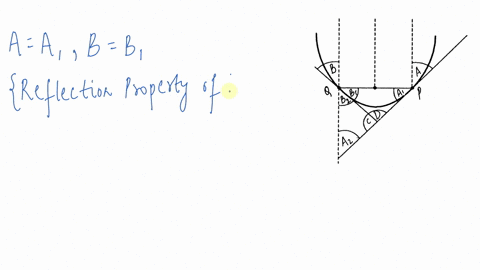 A = A₁ , B = B₁
{Reflection Property of
B
A
Q
B₁
B₂
A₁
P
C
D
A₂